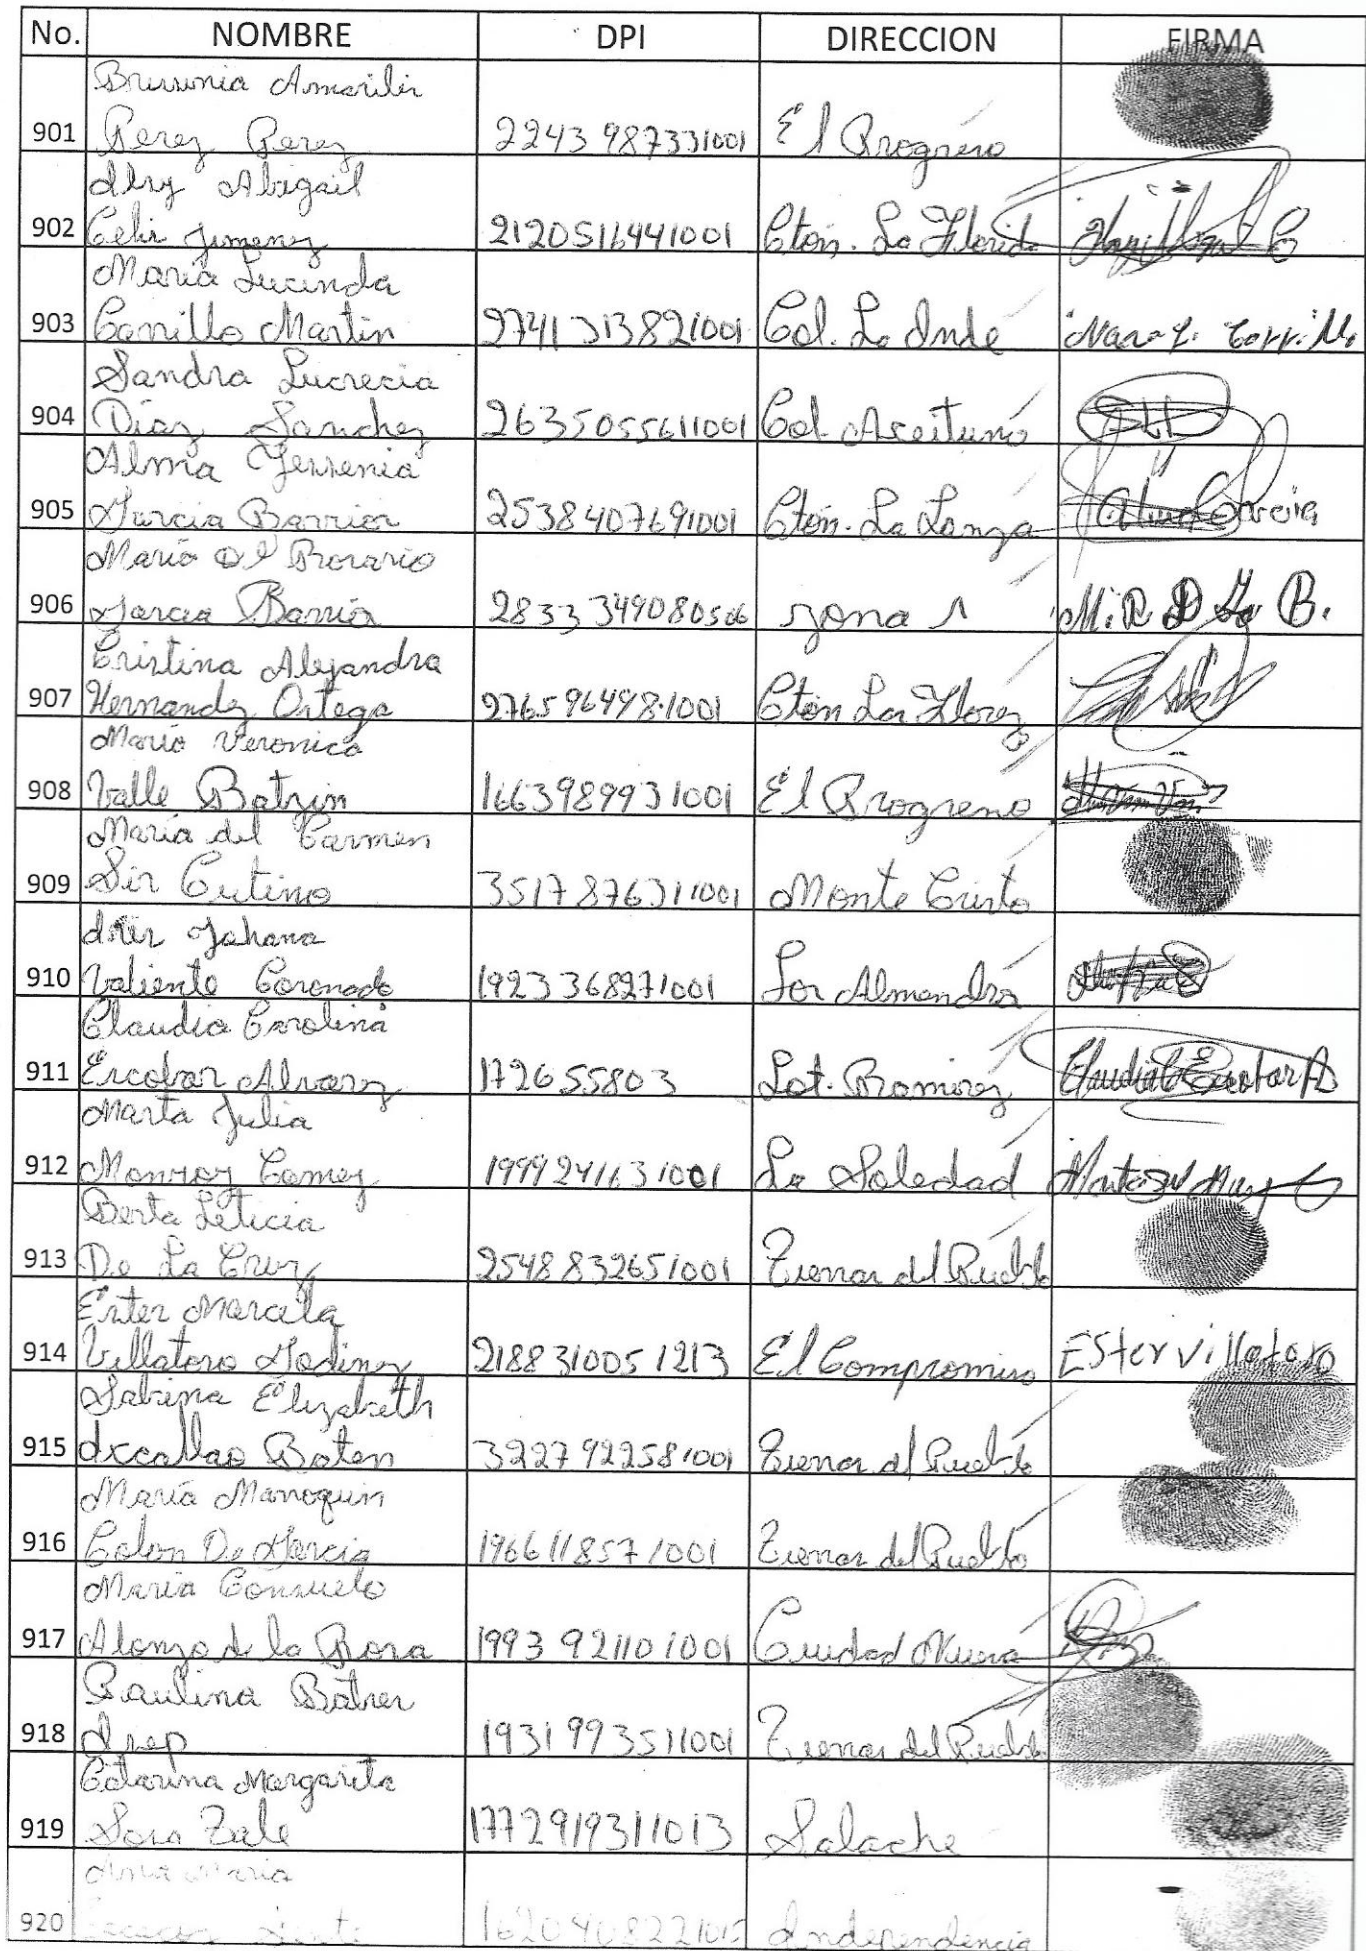 No. NOMBRE DPI DIRECCION FIRMA
Amarilis
901 Perez Perez 2243 987331001 El Progreso
Abigail
902 Celis Jimenez 2120516441001 Cton. La Florida
María Lucinda
903 Carrillo Martin 2741313821001 Col. La Inde
Sandra Lucrecia
904 Díaz Sanchez 2635055611001 Col. Aceituno
Alma Yessenia
905 Garcia Barrios 2538407691001 Cton. La Lanza
María Del Rosario
906 Garcia Barrios 2833 349080506 zona 1 M. R. D G. B.
Cristina Alejandra
907 Hernandez Ortega 2765964981001 Cton Las Flores
María Veronica
908 Valle Batzin 1663989931001 El Progreso
María del Carmen
909 Sir Cutino 3517876311001 Monte Cristo
Johana
910 Valiente Coronado 1923368271001 Los Almendros
Claudia Carolina
911 Escobar Alvarez 172655803 Lot. Ramirez Claudia Escobar A
Marta Julia
912 Monroy Gomez 1999241631001 La Soledad
Berta Leticia
913 De La Cruz 2548832651001 Tierras del Pueblo
Ester Marcela
914 Villatoro Godinez 2188310051213 El Compromiso Ester villatoro
Sabrina Elizabeth
915 Ixcallao Baten 3227922581001 Tierras del Pueblo
María
916 Colon De Garcia 1966118571001 Tierras del Pueblo
María Consuelo
917 Alonzo de la Rosa 1993921101001 Ciudad Nueva
Paulina Batres
918 1931993511001 Tierras del Pueblo
Catarina Margarita
919 Sosa Tale 1772919311013 Salache
Ana María
920 Independencia